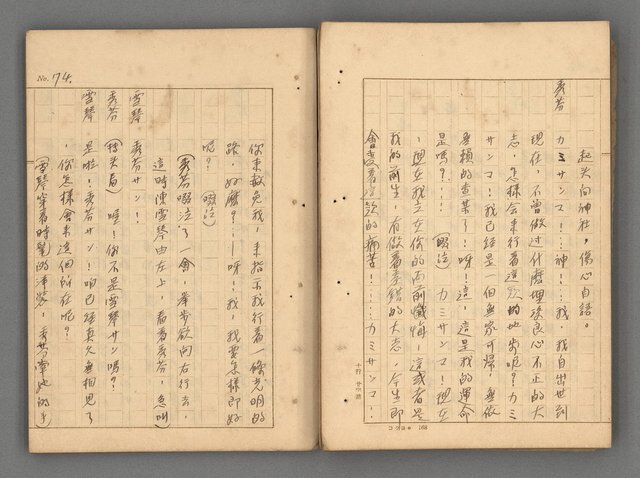 起头向神社，傷心自語。
秀芬 カミサンマ！…神！…我，我自出世到
現在，不曾做过什麼埋沒良心不正的大
志，怎樣会來行着這款的地步呢？カミ
サンマ！我已経是一個無家可帰，無依
無賴的查某了！呀！這，這是我的運命
是嗎？… （啜泣） カミサンマ！現在
，現在我立在你的面前懺悔，這或者是
我的前生，有做着差錯的大志，今生即
會受着這款的痛苦！…カミサンマ！…
十行 廿字 詰
コクヨ 168
No. 74.
你來救免我，來指示我行着一條光明的
路，好麼？…呀！我，我要怎樣即好
呢？ （啜泣）
（秀芬啜泣了一會，举步欲向右行去，
這時陳雪琴由左上，看着秀芬，急叫）
雪琴 秀芬サン！
秀芬 （轉头看）喔！你不是雪琴サン嗎？
雪琴 是啦！秀芬サン！咱已経真久無相見了
，你怎樣會來這個所在呢？
（雪琴穿着時髦的洋裝，秀芬牽她的手